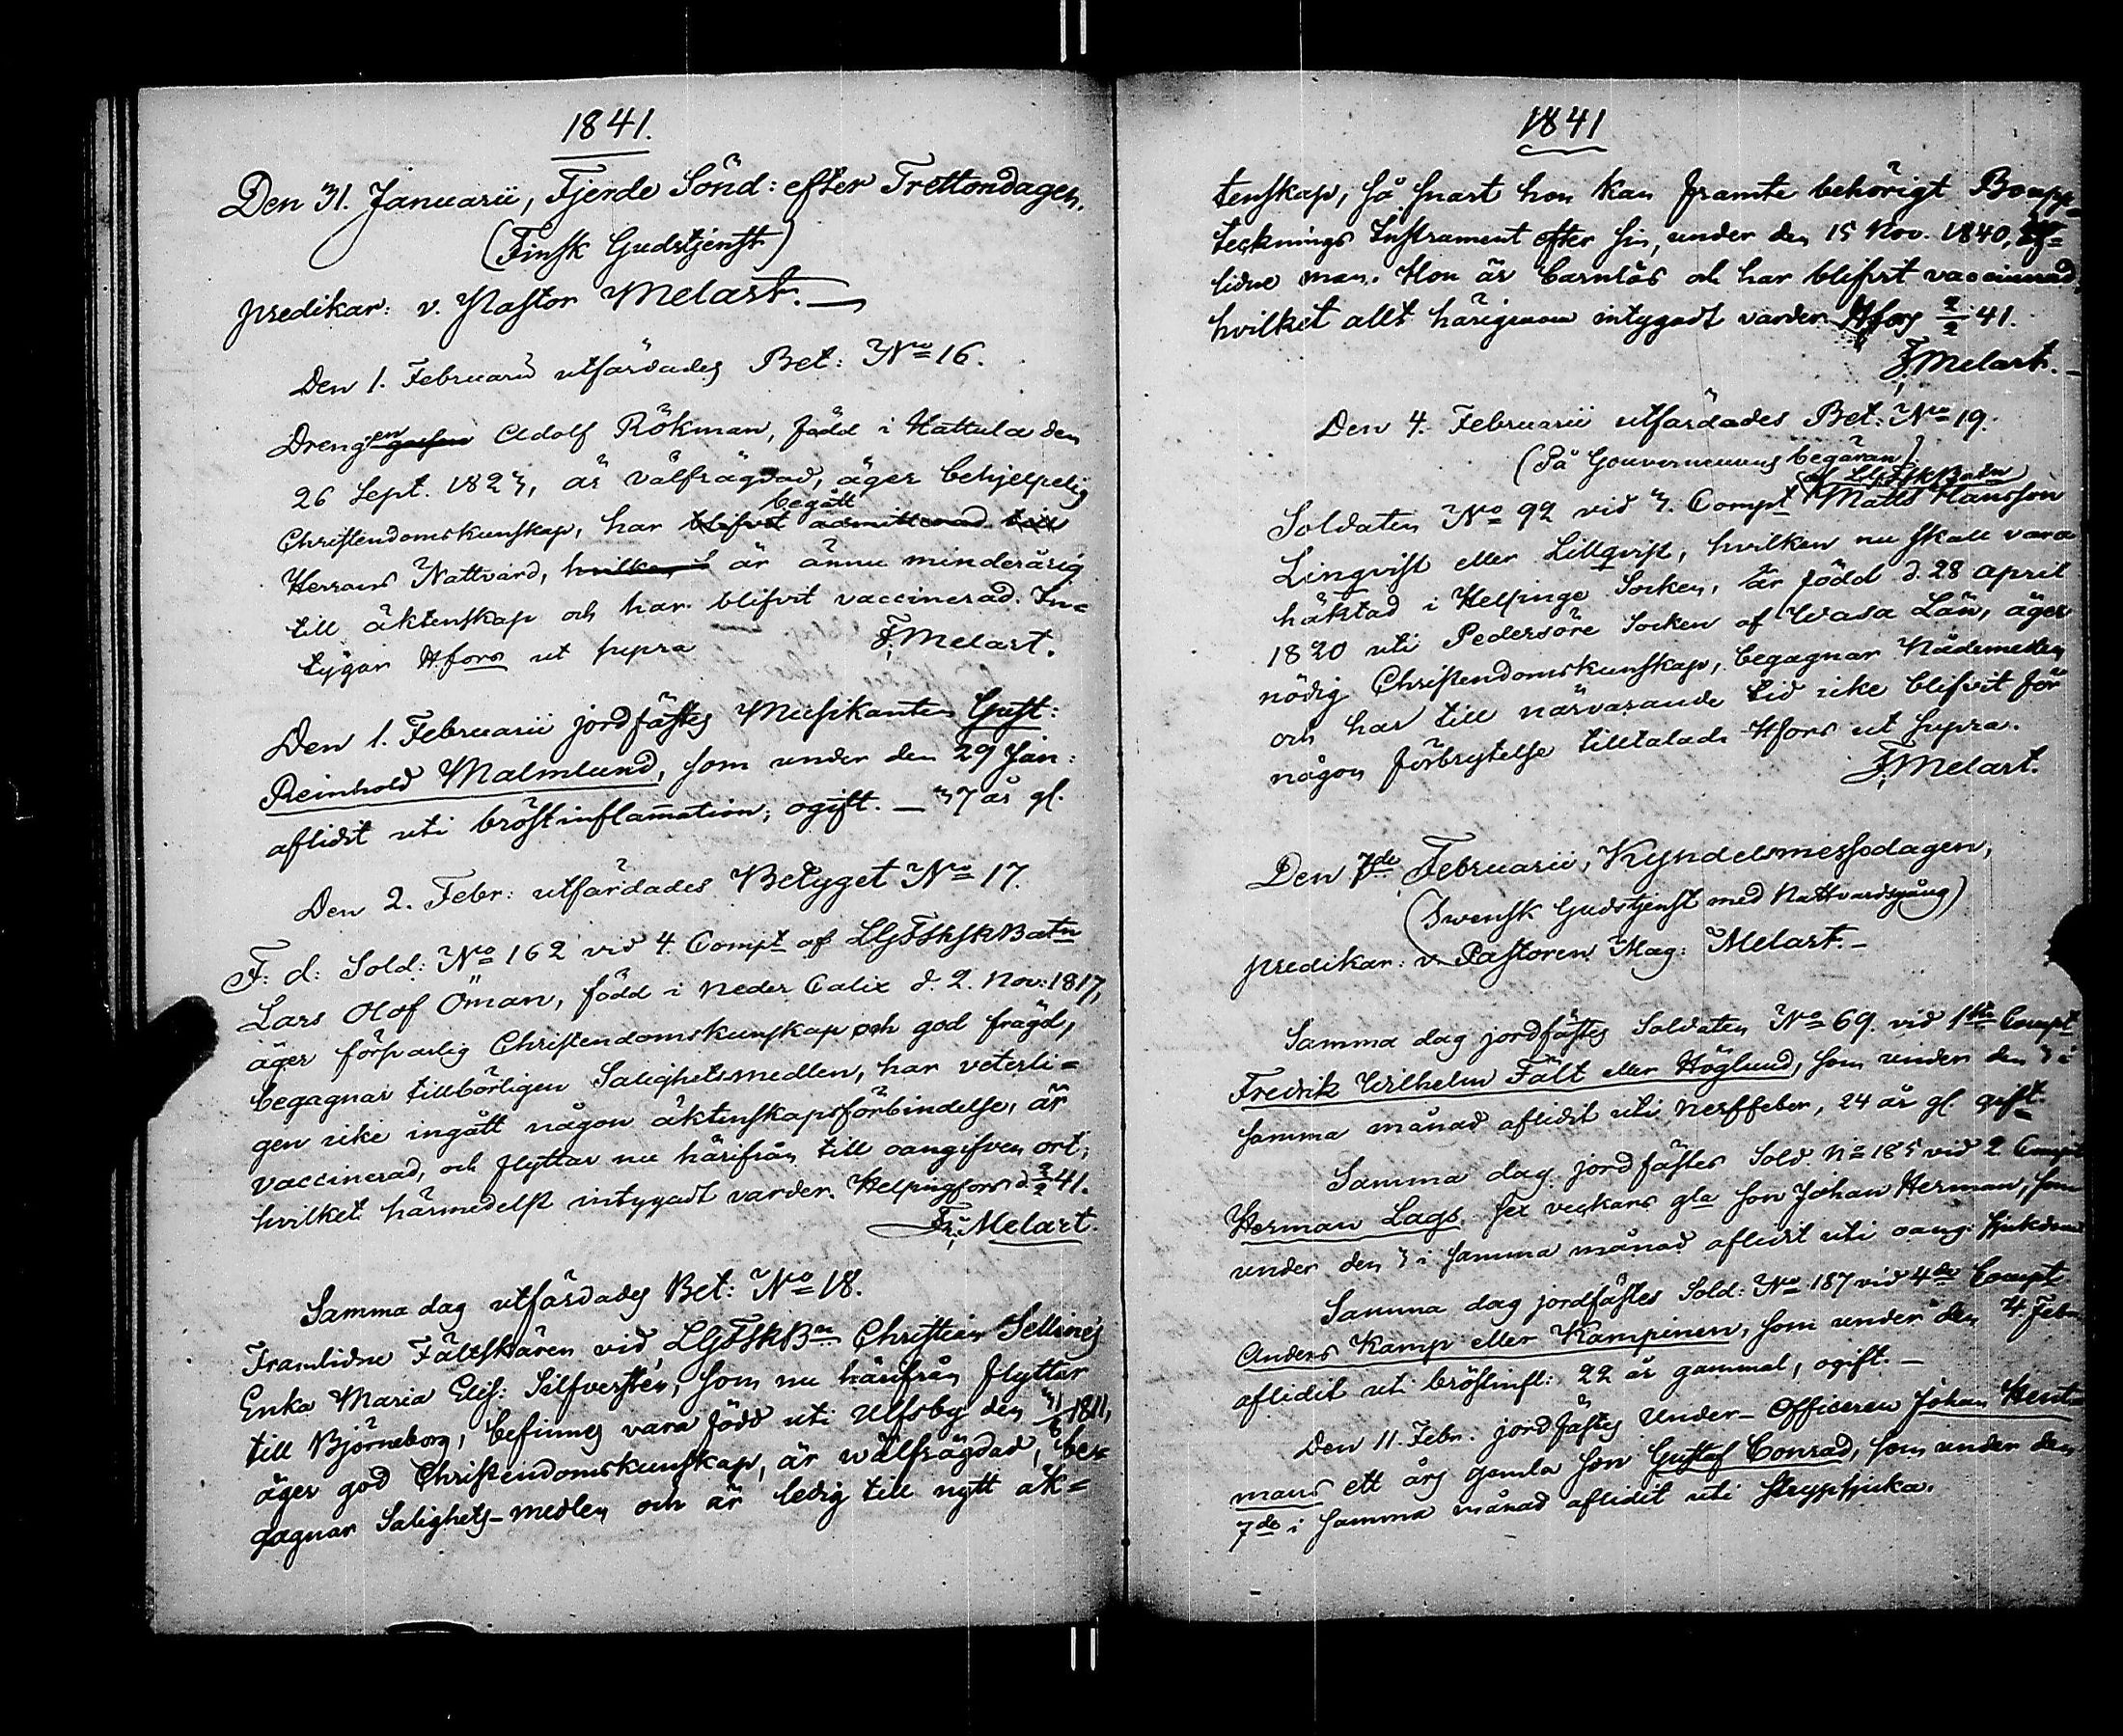 1841.
Den 31. Januarii, Fjerde Sönd: efter Trettondagen.
(Finsk Gudstjenst)
predikar: v. Pastor Melart.
Den 1. Februarii utfärdades Bet: No 16.
Drengen Adolf Rökman, född i Hattula den
26 Sept. 1823, är välfrägdad, äger behjelpelig
begått
Christendomskunskap, har blifvit admitterad till
Herrans Nattvard, är ännu minderårig
till äktenskap och har blifvit vaccinerad. In=
tygar Hfors ut supra F. Melart.
Den 1. Februarii jordfästes Musikanten Gust:
Reinhold Malmlund, som under den 29 Jan:
aflidit uti bröstinflamation, ogift. — 37 år gl.
Den 2. Febr: utfärdades Betyget No 17.
F: d: Sold: No 162 vid 4. Compt af LGFSkSkBatn
Lars Olof Öman, född i Neder Calix d. 2. Nov: 1817,
äger försvarlig Christendomskunskap och god frägd,
begagnar tillbörligen Salighetsmedlen, har veterli=
gen icke ingått någon äktenskapsförbindelse, är
vaccinerad, och flyttar nu härifrån till oangifven ort;
hvilket härmedelst intygadt varder. Helsingfors d. 2/2 41.
Fr: Melart.
Samma dag utfärdades Bet: No 18.
Framlidne Fältskären vid LGFSkBn Christian Sellines
Enka Maria Elis: Silfverstén, som nu härifrån flyttar
till Björneborg, befinnes vara född uti Ulfsby den 1811,
äger god Christendomskunskap, är wälfrägdad, be=
gagnar Salighets-medlen och är ledig till nytt äk=
1841
tenskap, så snart hon kan framte behörigt Boupp=
tecknings Instrument efter sin, under den 15 Nov. 1840, af=
lidne man. Hon är barnlös och har blifvit vaccinerad,
hvilket allt härigenom intygadt varder Hfors 2/2 41.
F. Melart.
Den 4. Februarii utfärdades Bet: No 19.
(På Gouverneurens begäran)
af LGFSkBatn
Soldaten No 92 vid 3. Compt Matts Hansson
Lingvist eller Lillqvist, hvilken nu skall vara
häktad i Helsinge Socken, är född d. 28 april
1820 uti Pedersöre Socken af Wasa Län, äger
nödig Christendomskunskap, begagnar Nådemedlen
och har till närvarande tid icke blifvit för
någon förbrytelse tilltalad. Hfors ut supra.
F. Melart.
Den 7de Februarii, Kyndelsmessodagen,
(Swensk Gudstjenst med Nattvardsgång)
predikar: v. Pastoren Mag: Melart.
Samma dag jordfästes Soldaten No 69 vid 1sta Compt
Fredrik Wilhelm Fält eller Höglund, som under den 3 i
samma månad aflidit uti Nerffeber, 24 år gl. gift.
Samma dag jordfästes Sold. No 185 vid 2 Compt
Herman Lags sex veckors gla son Johan Herman, som
under den 3 i samma månad aflidit uti oang. sjukdom
Samma dag jordfästes Sold: No 187 vid 4de Compt
Anders Kamp eller Kampinen, som under den 4 Feb
aflidit uti bröstinfl: 22 år gammal, ogift. —
Den 11. Febr. jordfästes Under-Officeren Johan Hent=
mans ett års gamla son Gustaf Conrad, som under den
7de i samma månad aflidit uti Strypsjuka.